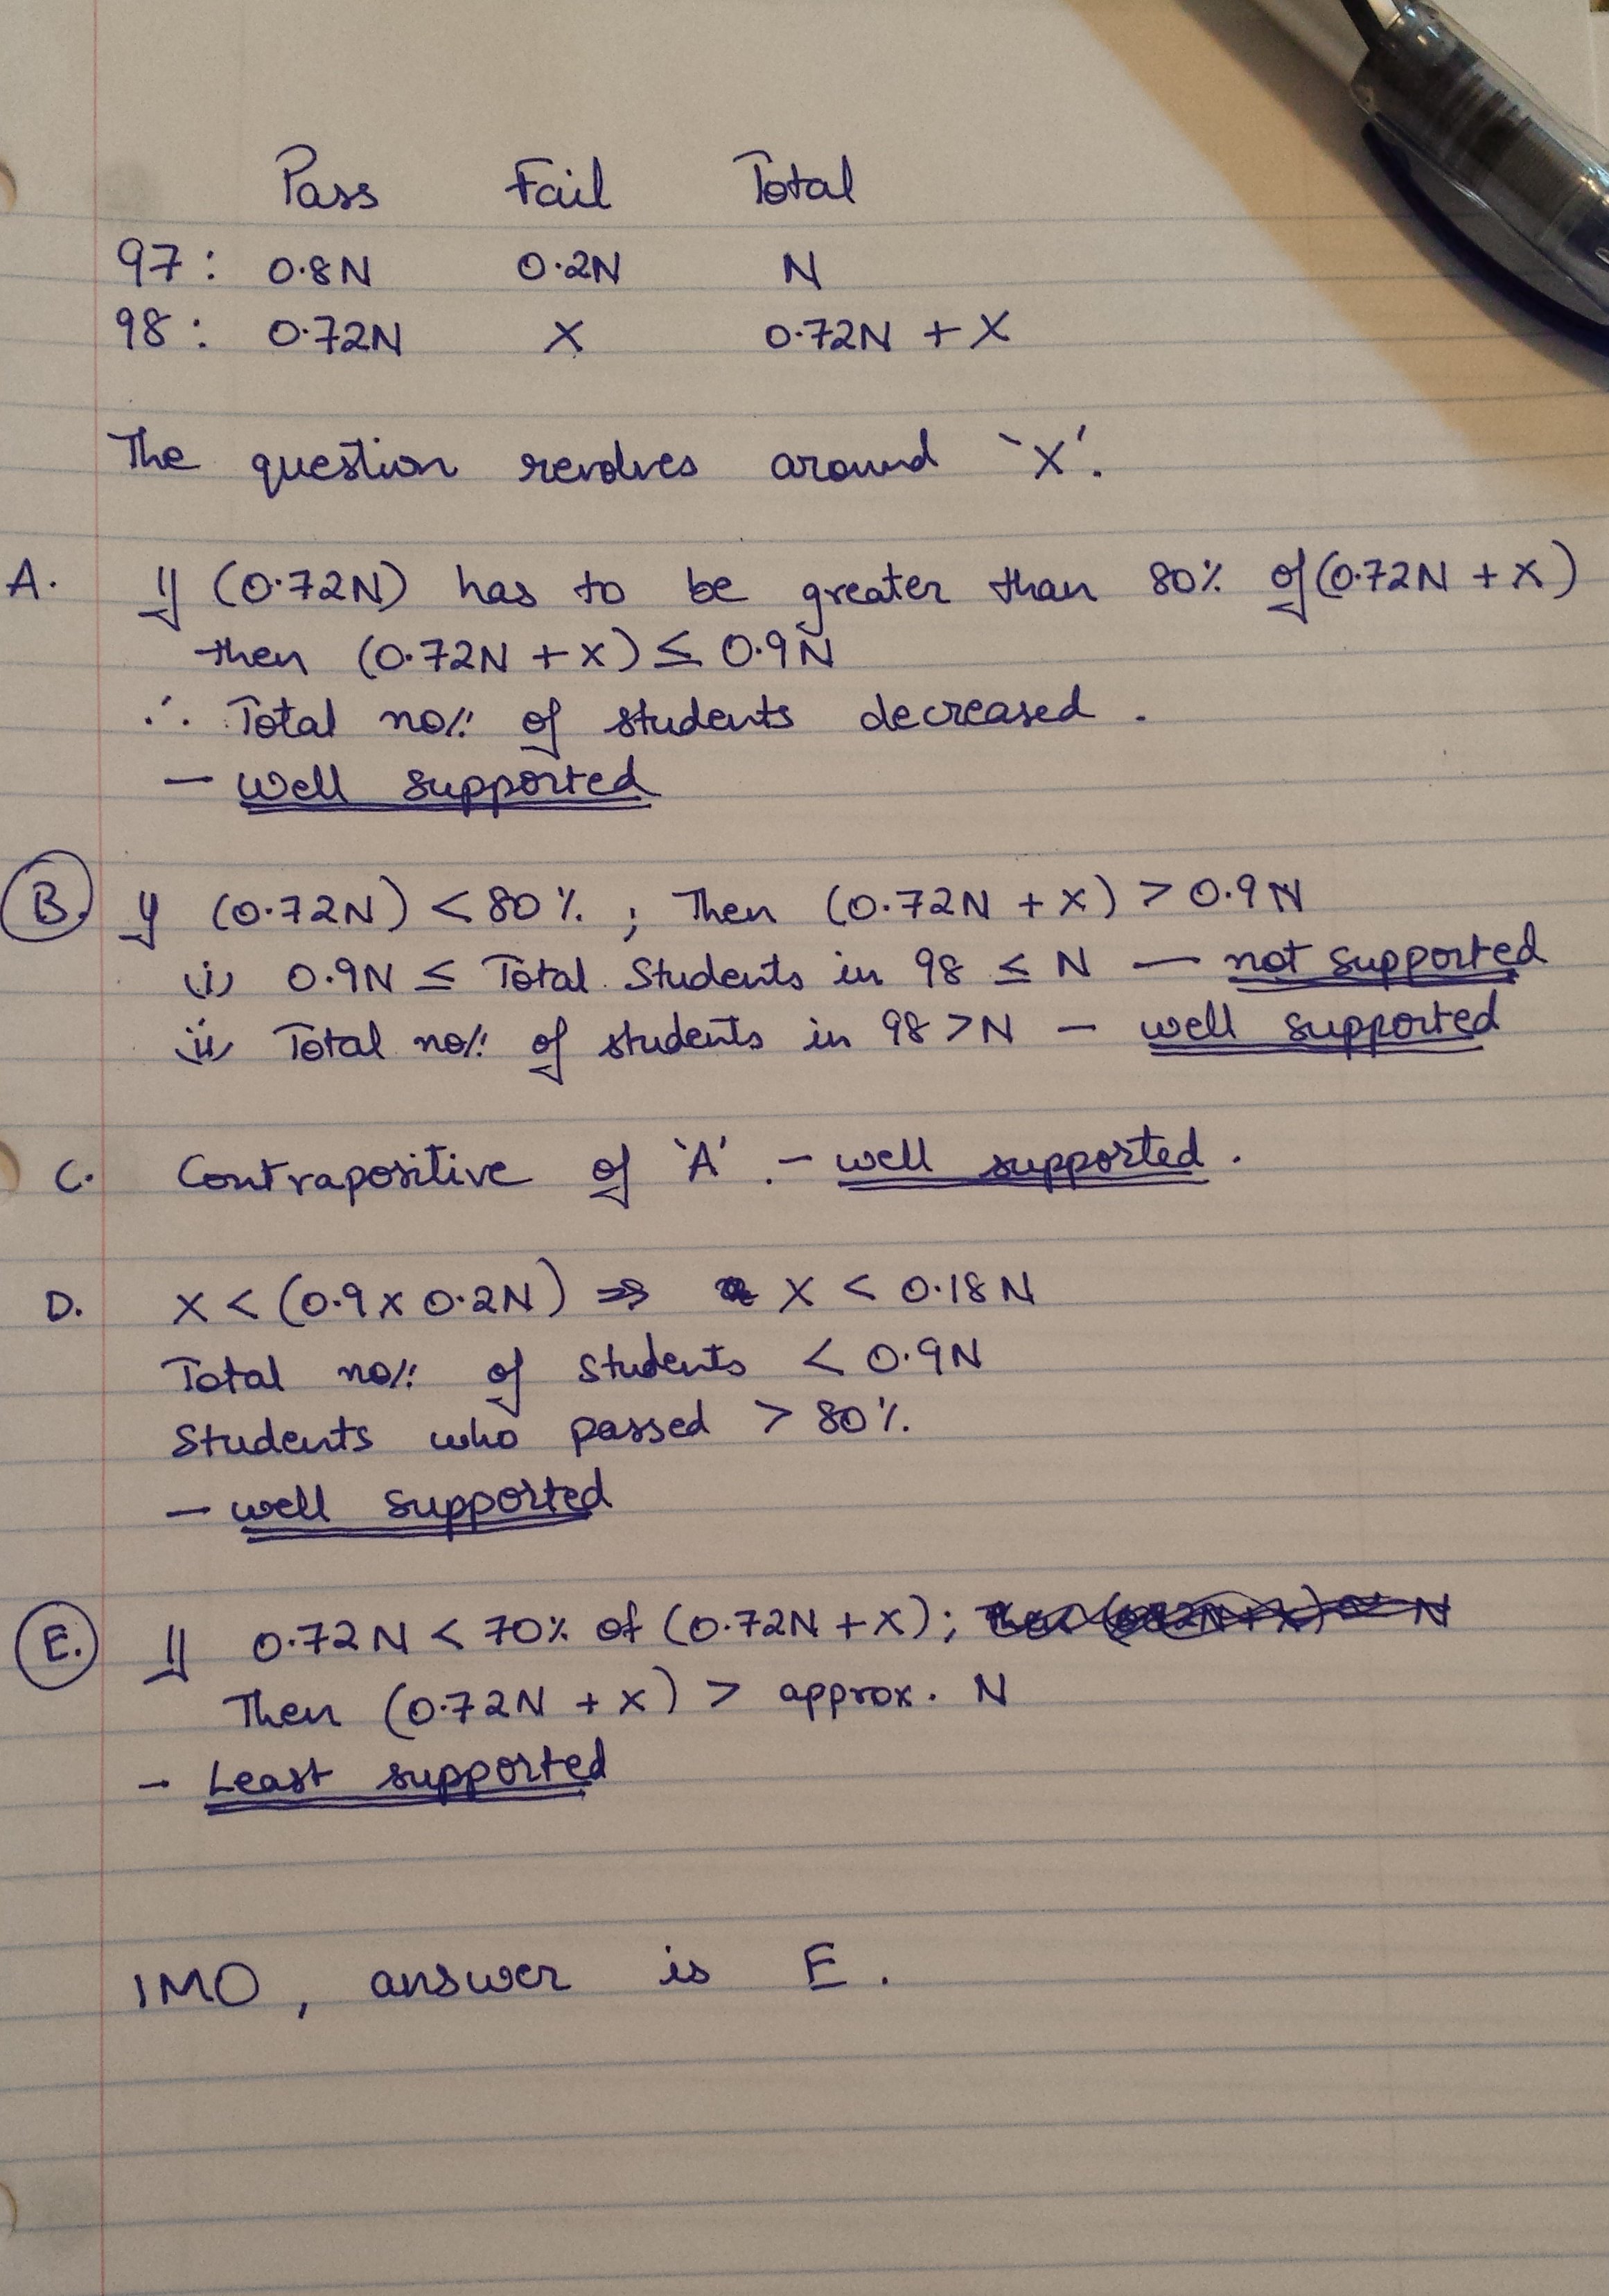 Pass Fail Total
97: 0.8N 0.2N N
98: 0.72N X 0.72N + X
The question revolves around 'X'.
A. If (0.72N) has to be greater than 80% of (0.72N + X)
then (0.72N + X) ≤ 0.9N
∴ Total no/: of students decreased.
- well supported
B. If (0.72N) < 80% ; Then (0.72N + X) > 0.9N
(i) 0.9N ≤ Total Students in 98 ≤ N - not supported
(ii) Total no/: of students in 98 > N - well supported
C. Contrapositive of 'A'. - well supported.
D. X < (0.9 x 0.2N) ⇒ X < 0.18N
Total no/: of students < 0.9N
Students who passed > 80%.
- well supported
E. If 0.72N < 70% of (0.72N + X);
Then (0.72N + X) > approx. N
- Least supported
IMO, answer is E.